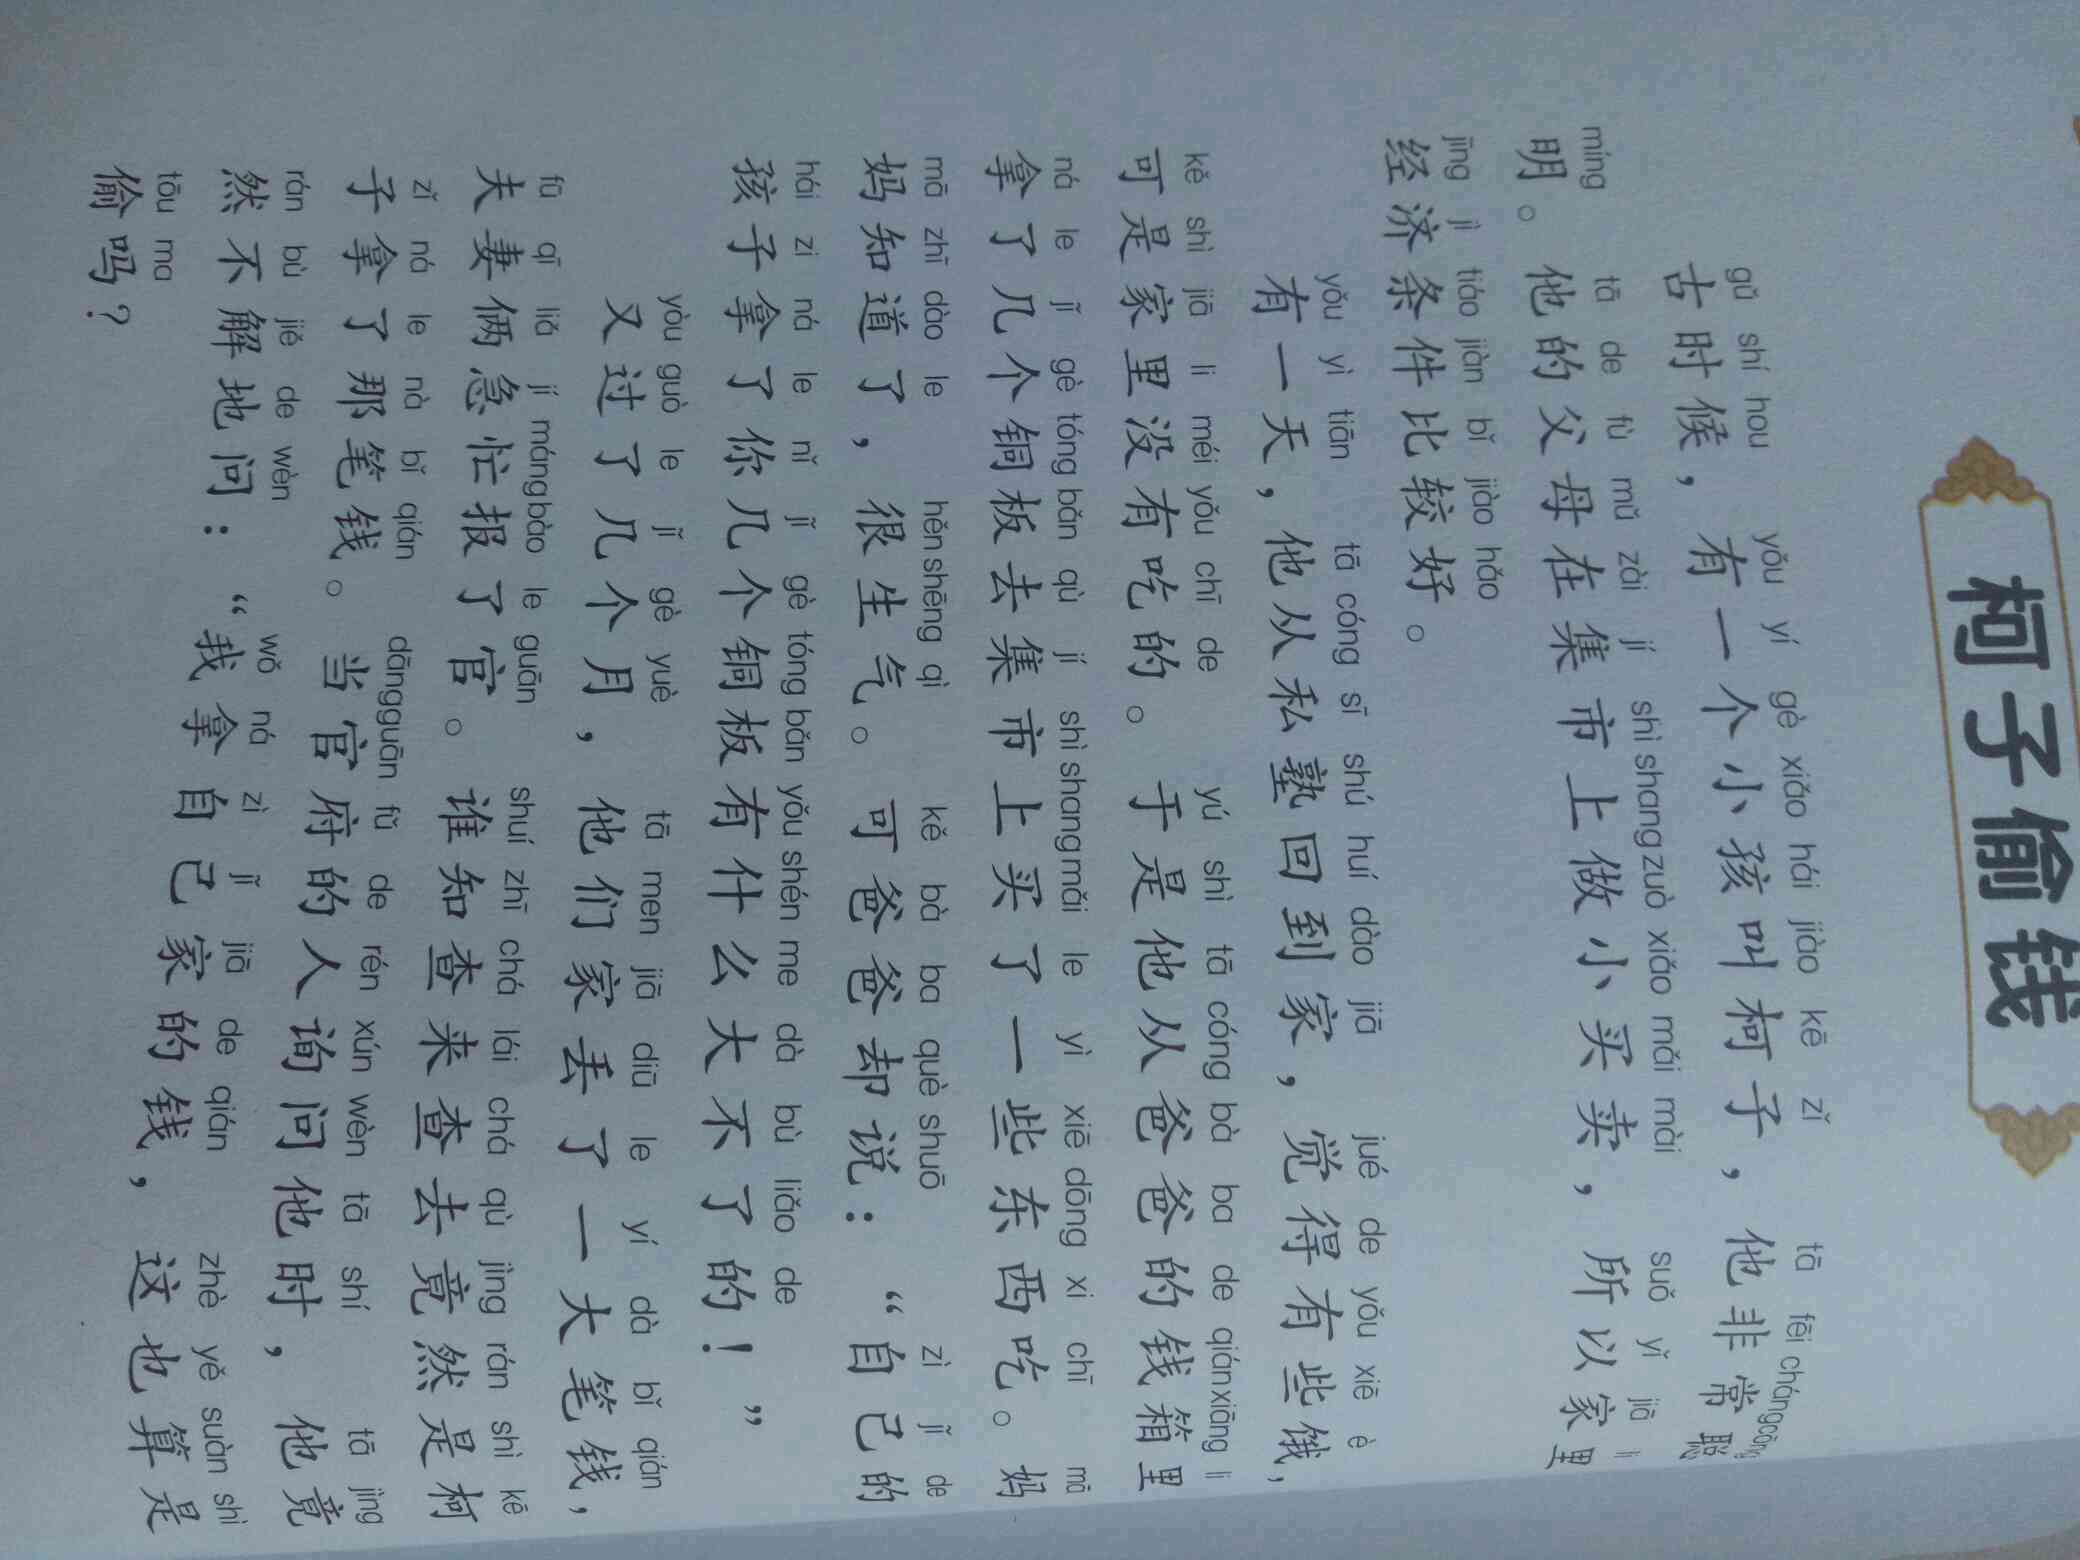 柯子偷钱
gǔ shí hou yǒu yí gè xiǎo hái jiào kē zǐ tā fēi cháng cōng
古时候，有一个小孩叫柯子，他非常聪
míng tā de fù mǔ zài jí shì shang zuò xiǎo mǎi mài suǒ yǐ jiā li
明。他的父母在集市上做小买卖，所以家里
jīng jì tiáo jiàn bǐ jiào hǎo
经济条件比较好。
yǒu yì tiān tā cóng sī shú huí dào jiā jué de yǒu xiē è
有一天，他从私塾回到家，觉得有些饿，
kě shì jiā li méi yǒu chī de yú shì tā cóng bà ba de qián xiāng li
可是家里没有吃的。于是他从爸爸的钱箱里
ná le jǐ gè tóng bǎn qù jí shì shang mǎi le yì xiē dōng xi chī mā
拿了几个铜板去集市上买了一些东西吃。妈
mā zhī dào le hěn shēng qì kě bà ba què shuō zì jǐ de
妈知道了，很生气。可爸爸却说：“自己的
hái zi ná le nǐ jǐ gè tóng bǎn yǒu shén me dà bù liǎo de
孩子拿了你几个铜板有什么大不了的！”
yòu guò le jǐ gè yuè tā men jiā diū le yí dà bǐ qián
又过了几个月，他们家丢了一大笔钱，
fū qī liǎ jí máng bào le guān shuí zhī chá lái chá qù jìng rán shì kē
夫妻俩急忙报了官。谁知查来查去竟然是柯
zǐ ná le nà bǐ qián dāng guān fǔ de rén xún wèn tā shí tā jìng
子拿了那笔钱。当官府的人询问他时，他竟
rán bù jiě de wèn wǒ ná zì jǐ jiā de qián zhè yě suàn shì
然不解地问：“我拿自己家的钱，这也算是
tōu ma
偷吗？